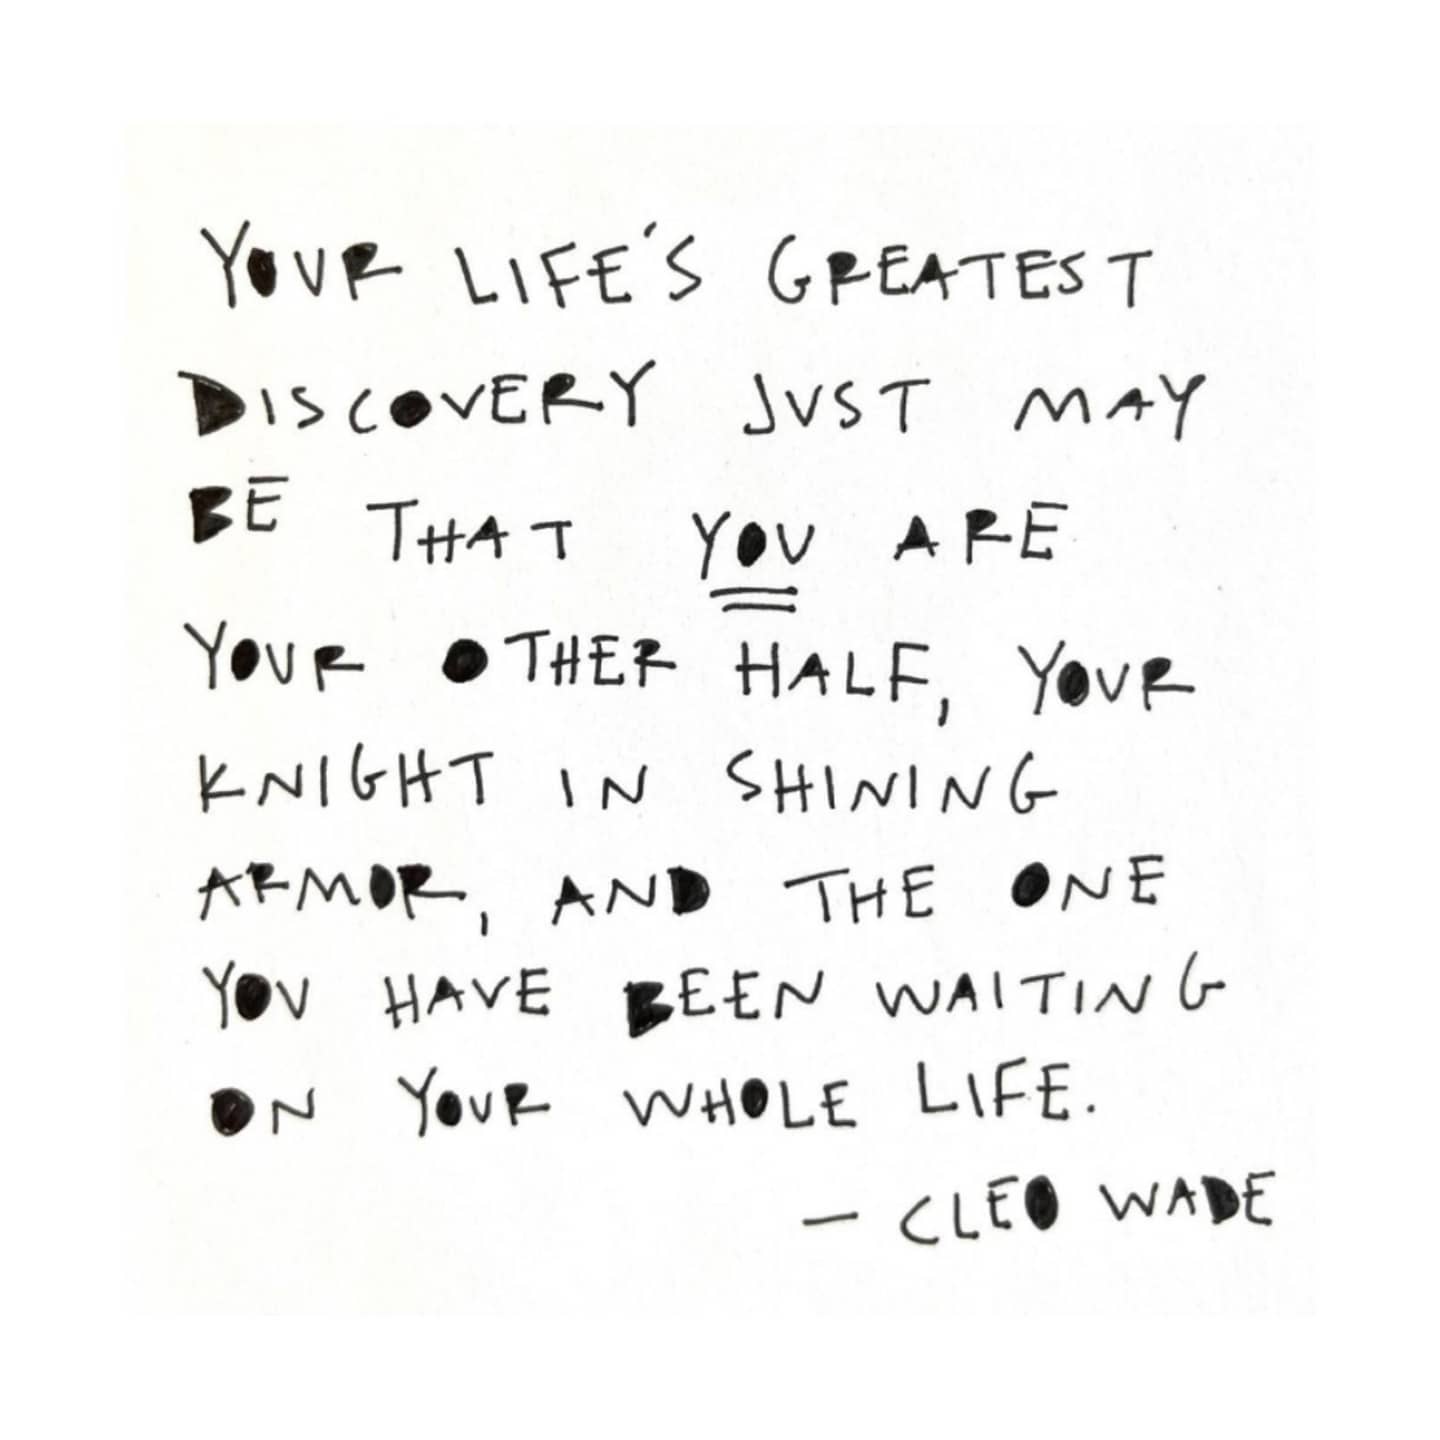 YOUR LIFE'S GREATEST
DISCOVERY JUST MAY
BE THAT YOU ARE
YOUR OTHER HALF, YOUR
KNIGHT IN SHINING
ARMOR, AND THE ONE
YOU HAVE BEEN WAITING
ON YOUR WHOLE LIFE.
— CLEO WADE